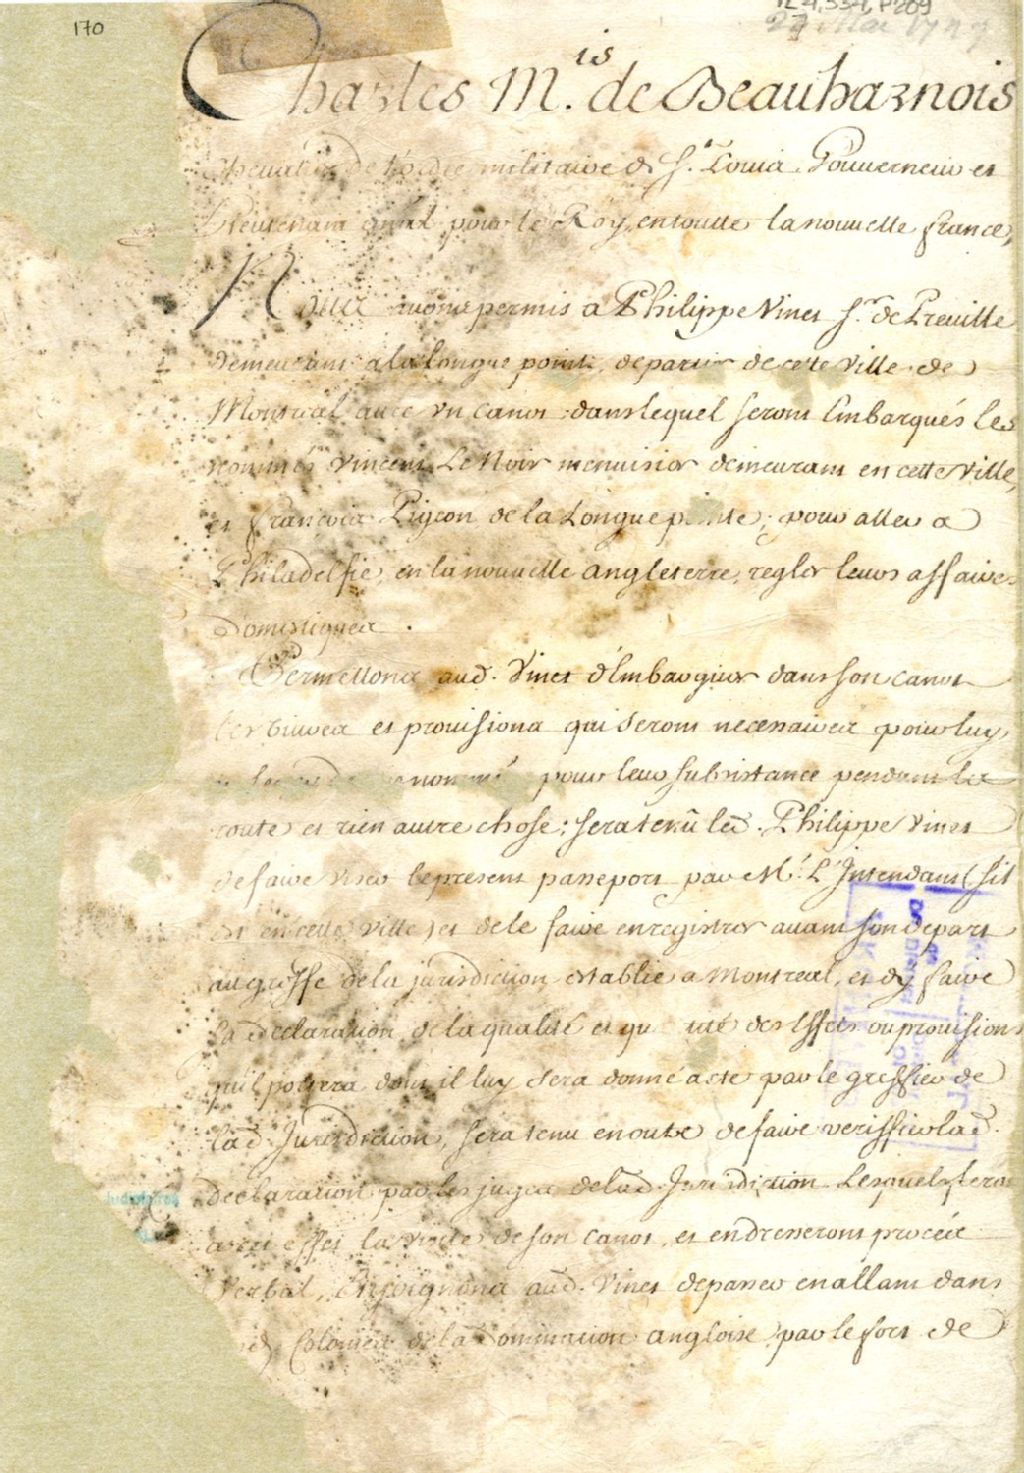 170
TL4,S34,P209
27 Mai 1729
Charles M.is de Beauharnois
Chevalier de l'ordre militaire de St. Louis Gouverneur et
Lieutenant gnãl pour le Roy, en toutte la nouuelle france,
Nous auons permis a Philippe Vinet Sr. de Preuille
demeurant a la longue pointe, de partir de cette Ville de
Montreal auec vn Canot dans lequel seront Embarqués les
nommés Vincent Le Noir menuisier demeurant en cette Ville,
et francois Pigeon de la Longue pointe; pour aller a
Philadelfie, en la nouuelle angleterre, regler leurs affaires
Domestiques.
Permettons aud. Vinet d'Embarquer dans son canot
les viures et prouisions qui seront necessaires pour luy
nommés pour leur subsistance pendant la
route et rien autre chose; sera tenû led. Philippe Vinet
de faire viser le present passeport par Mr. L'Intendant (sil
est en cette Ville) et de le faire enregistrer auant son depart
au greffe de la jurisdiction establie a Montreal, et dy faire
sa declaration de la qualité et qu ité des Effets ou prouisions
quil portera dont il luy sera donné acte par le greffier de
lad. Jurisdiction, sera tenu en outre de faire veriffier lad.
declaration par les juges de lad. Jurisdiction Lesquels feront
a cet effet la visite de son Canot, et en dresseront procés
Verbal, Enjoignons aud. Vinet de passer en allant dans
Colonies de la Domination angloise par le fort de